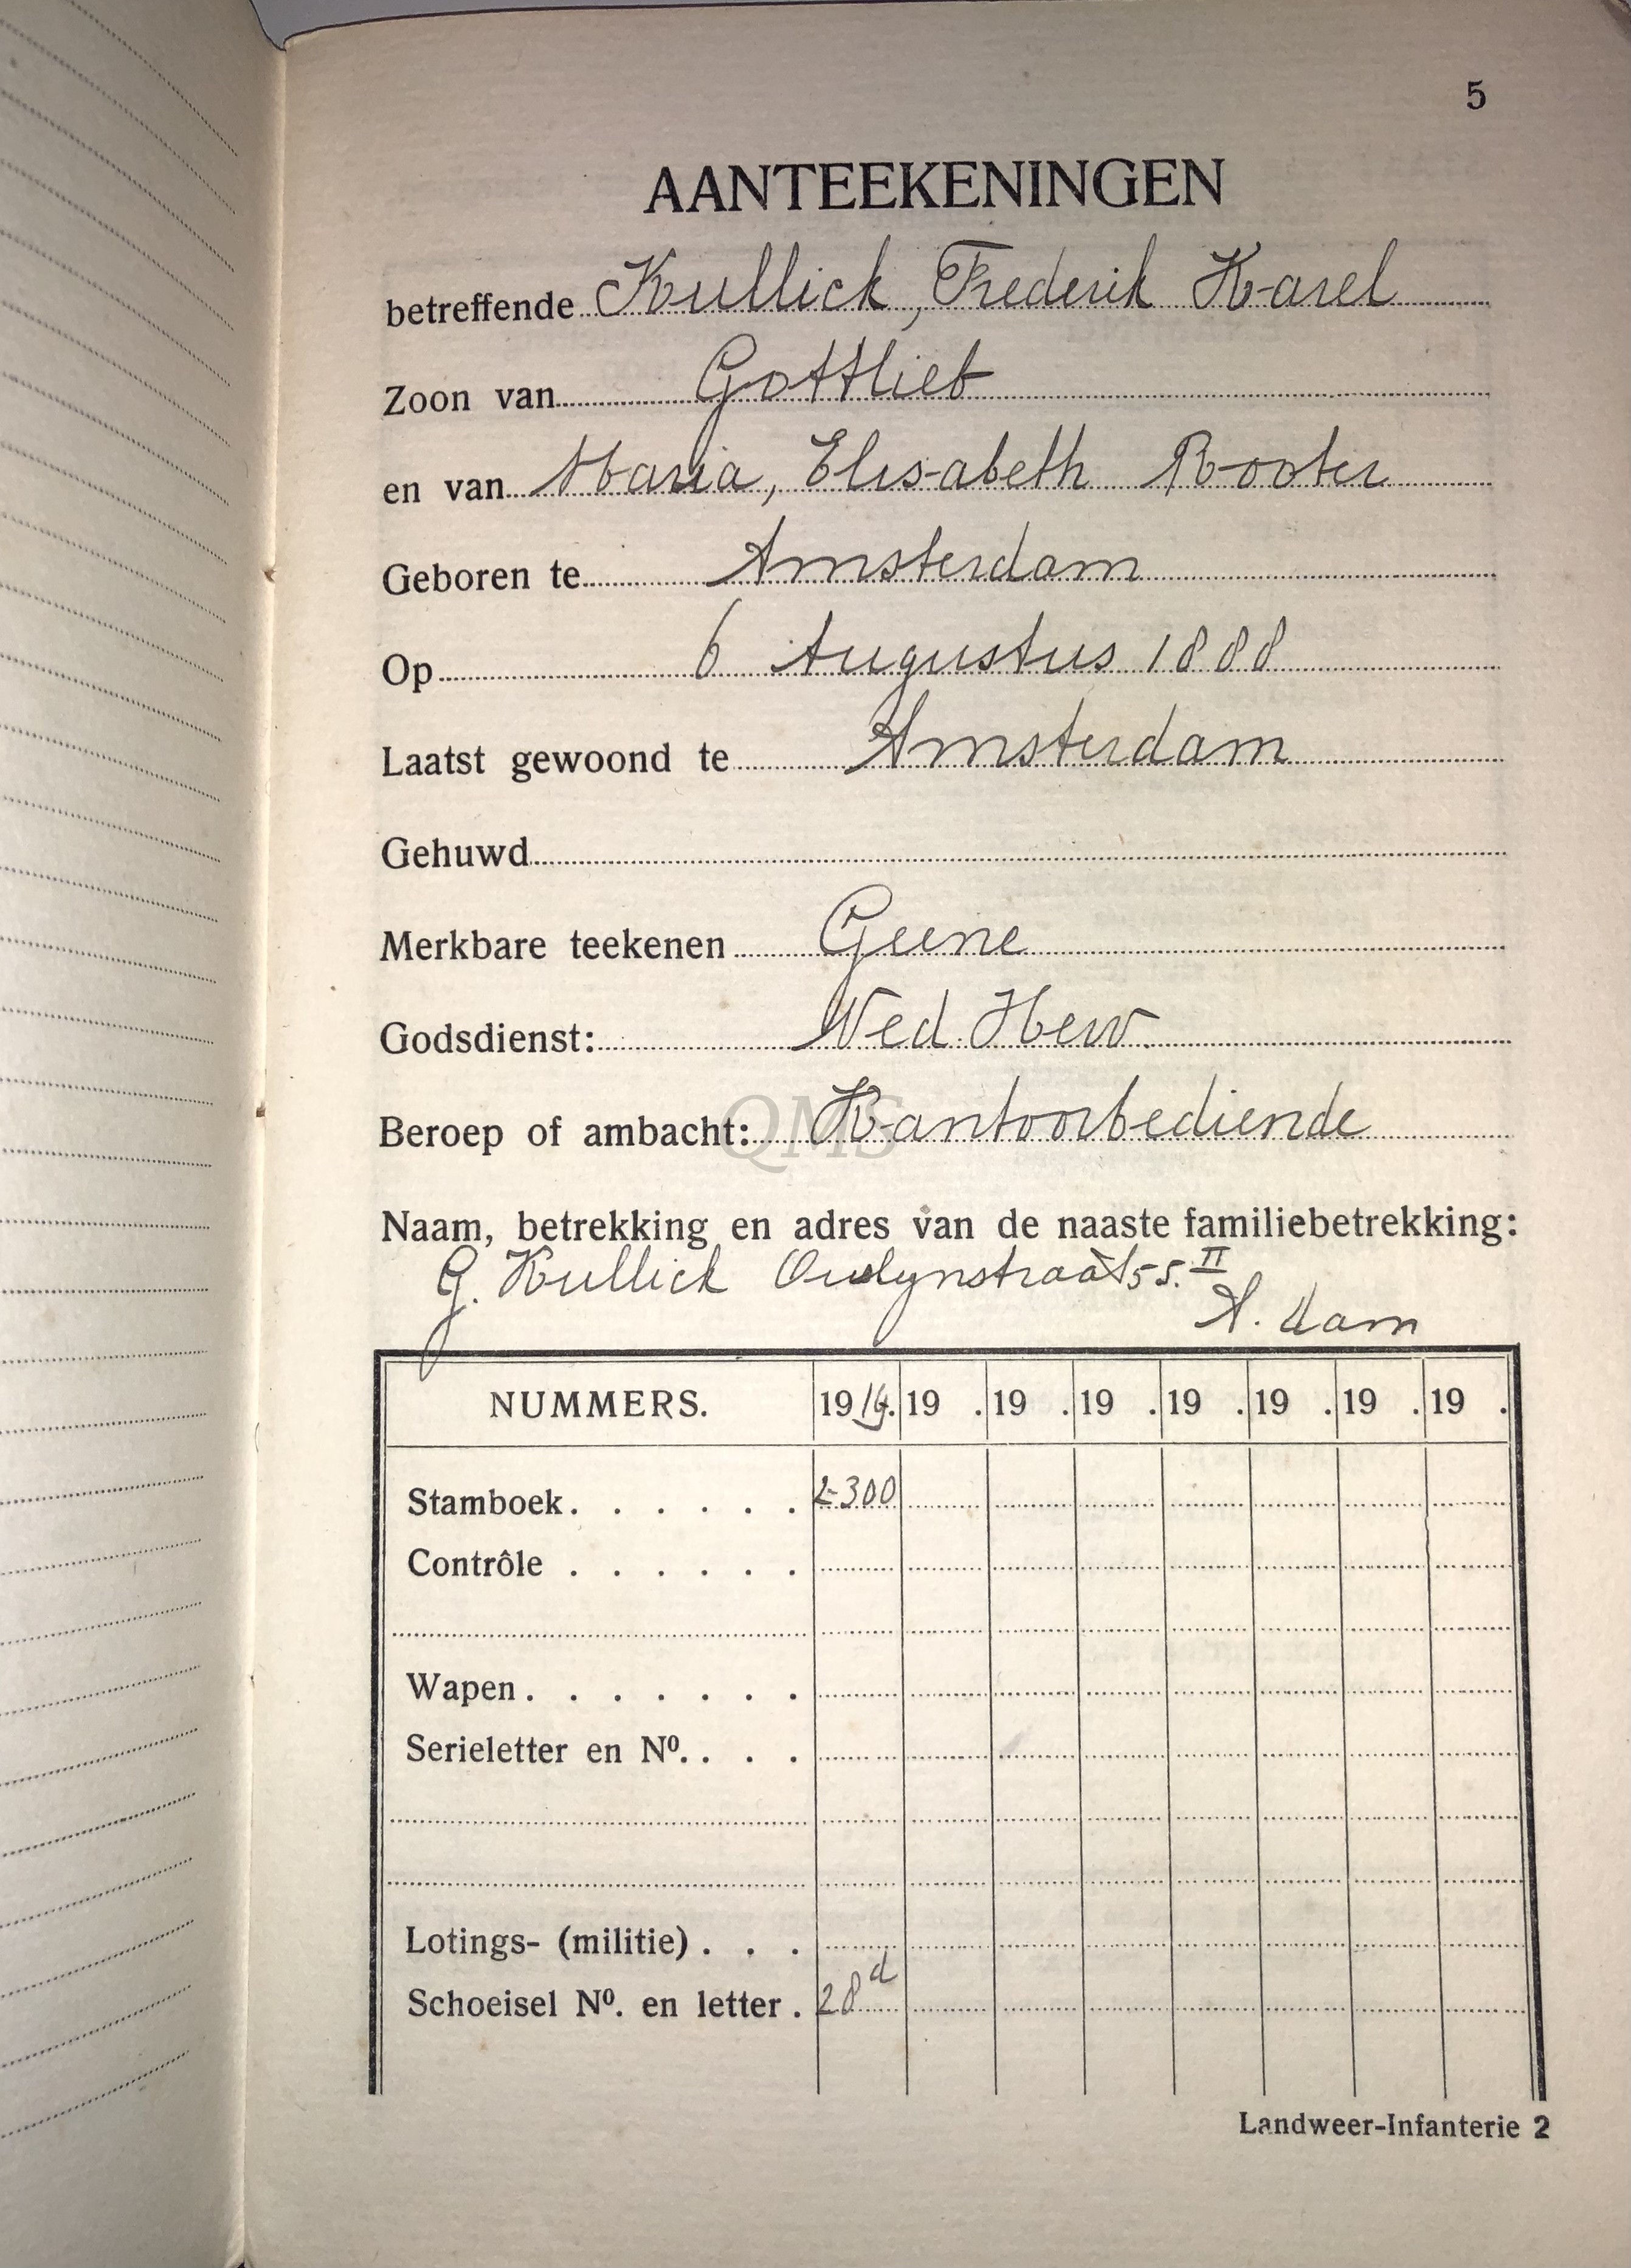 5
AANTEEKENINGEN
betreffende Kullick, Frederik Karel
Zoon van Gottlieb
en van Maria, Elisabeth Rooter
Geboren te Amsterdam
Op 6 Augustus 1888
Laatst gewoond te Amsterdam
Gehuwd
Merkbare teekenen Geene
Godsdienst: Ned. Herv.
Beroep of ambacht: Kantoorbediende
QMS
Naam, betrekking en adres van de naaste familiebetrekking:
G. Kullick 55. II
A. dam
NUMMERS. 1914. 19 . 19 . 19 . 19 . 19 . 19 . 19 .
Stamboek. . . . . . 2300
Contrôle . . . . . .
Wapen. . . . . . .
Serieletter en Nº. . . .
Lotings- (militie) . . .
Schoeisel Nº. en letter . 28 d
Landweer-Infanterie 2